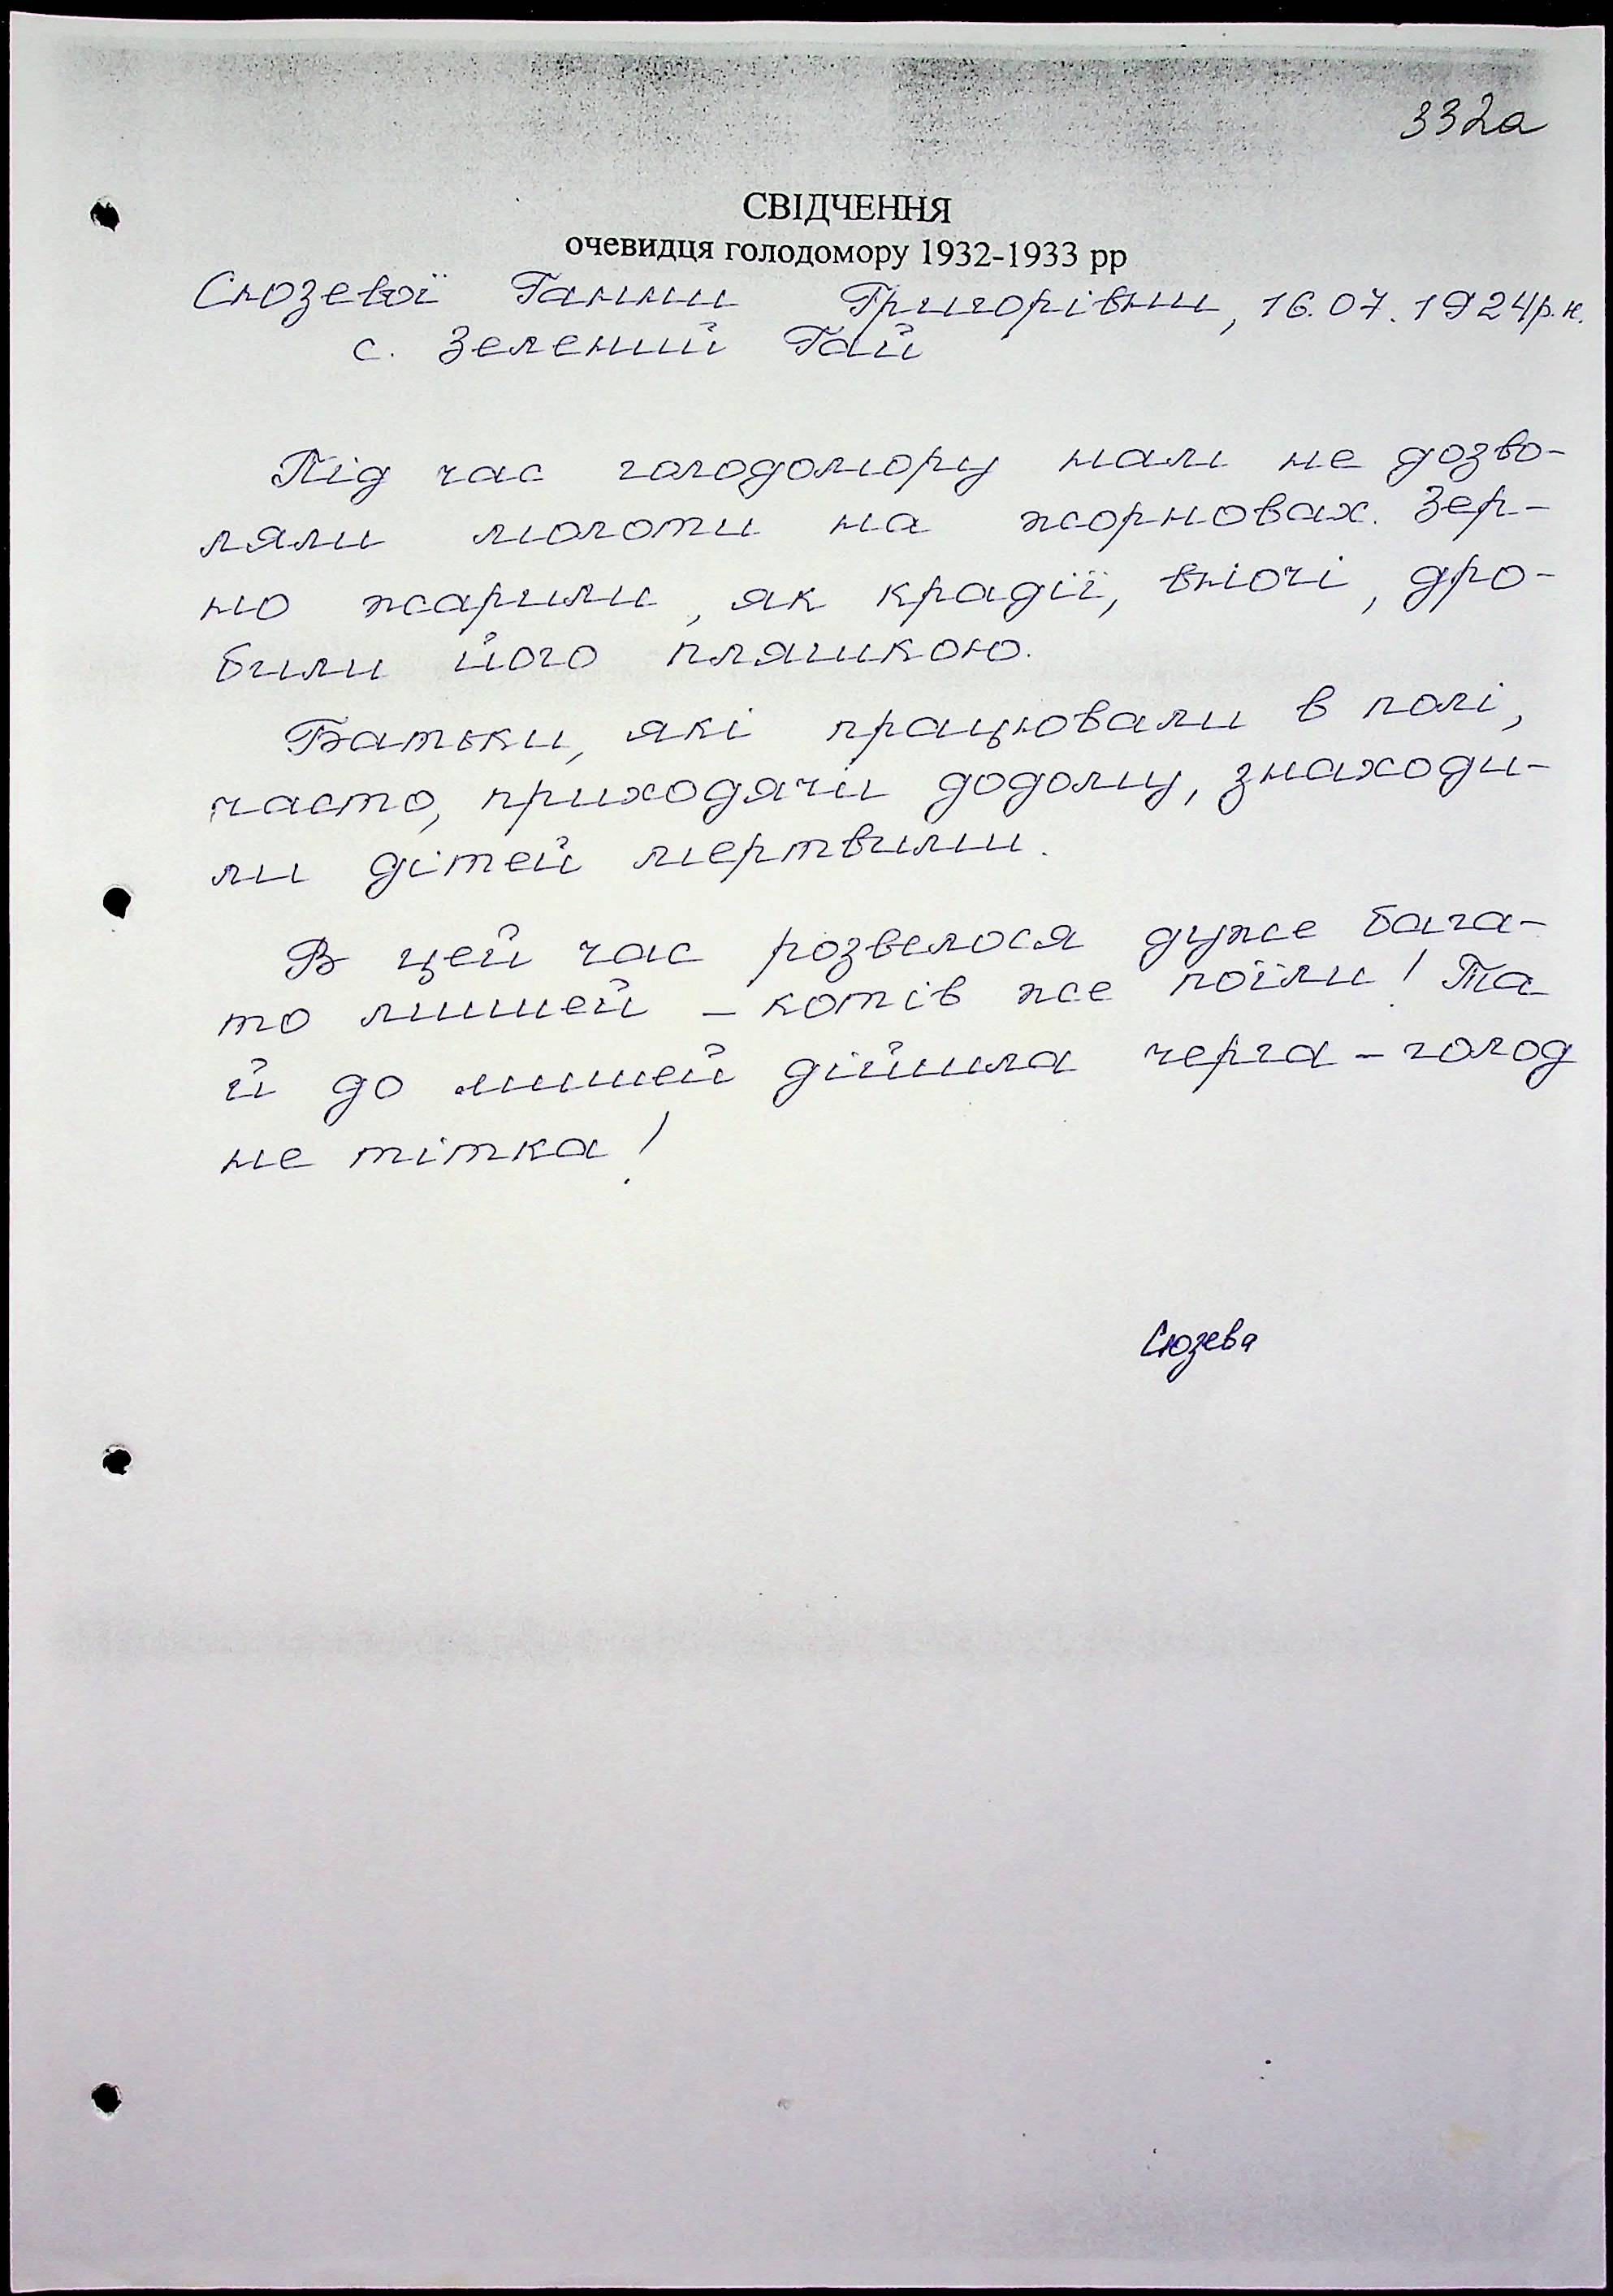 332а
СВІДЧЕННЯ
очевидця голодомору 1932-1933 рр
Сюзевої Ганни Григорівни, 16.07.1924р.н.
с. Зелений Гай
Під час голодомору нам не дозво-
ляли молоти на жорновах. Зер-
но жарили, як крадії, вночі, дро-
били його пляшкою.
Батьки, які працювали в полі,
часто, приходячи додому, знаходи-
ли дітей мертвими.
В цей час розвелося дуже бага-
то мишей – котів же поїли! Та
й до мишей дійшла черга – голод
не тітка!
Сюзева